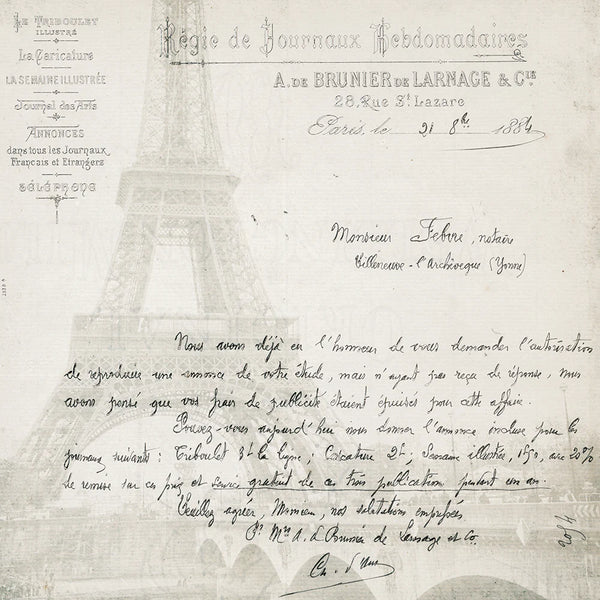 Le Triboulet
illustré
La Caricature
La Semaine Illustrée
Journal des Arts
Annonces
dans tous les Journaux
Français et Etrangers
Téléphone
Régie de Journaux Hebdomadaires
A. de Brunier de Larnage & Cie
28, Rue St Lazare
Paris, le 21 8bre 1884
Monsieur Febvre, notaire
Villeneuve-l'Archevêque (Yonne)
Nous avons déjà eu l'honneur de vous demander l'autorisation
de reproduire une annonce de votre étude, mais n'ayant pas reçu de réponse, nous
avons pensé que vos frais de publicité étaient épuisés pour cette affaire.
Pouvez-vous aujourd'hui nous donner l'annonce incluse pour les
journaux suivants : Triboulet 3f la ligne ; Caricature 2f ; Semaine illustrée, 1f50, avec 20%
de remise sur ces prix et service gratuit de ces trois publications pendant un an.
Veuillez agréer, Monsieur, nos salutations empressées
Pr Mrs A. de Brunier de Larnage et Co.